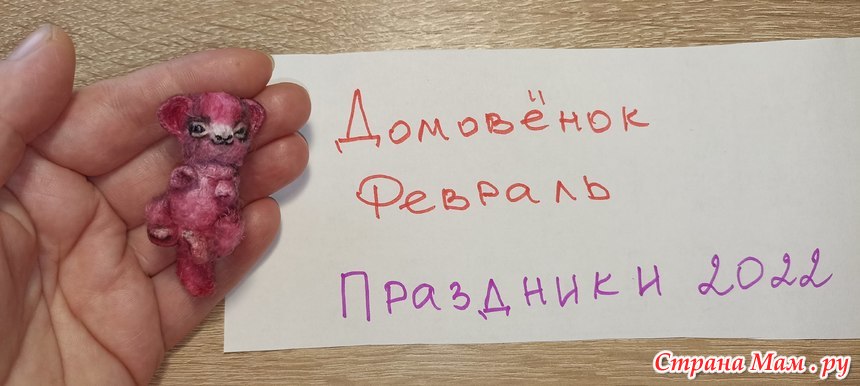 Домовёнок
Февраль
Праздники 2022
Страна Мам.ру